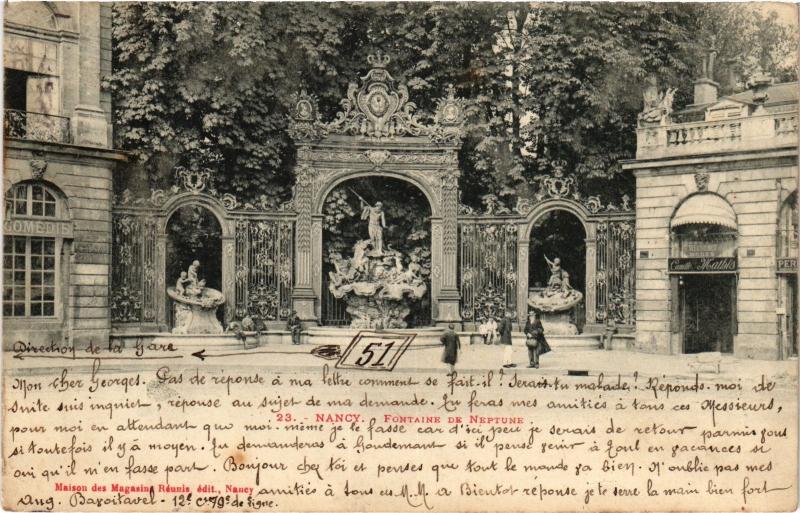 COMEDIE
Camille Mathis
PER
Direction de la Gare
51
Mon cher Georges. Pas de réponse à ma lettre comment se fait-il? Serais-tu malade? Réponds-moi de
suite suis inquiet, réponse au sujet de ma demande. Tu feras mes amitiés à tous ces Messieurs,
23. - NANCY. FONTAINE DE NEPTUNE
pour moi en attendant que moi-même je le fasse car d'ici peu je serais de retour parmis vous
si toutefois il y à moyen. Tu demanderas à Goudemant si il pense venir à Toul en vacances si
oui qu'il m'en fasse part. Bonjour chez toi et penses que tout le monde va bien. N'oublie pas mes
Maison des Magasins Réunis, édit., Nancy
amitiés à tous ces M.M. A Bientot réponse je te serre la main bien fort
Aug. 12e Cie 79e de ligne.